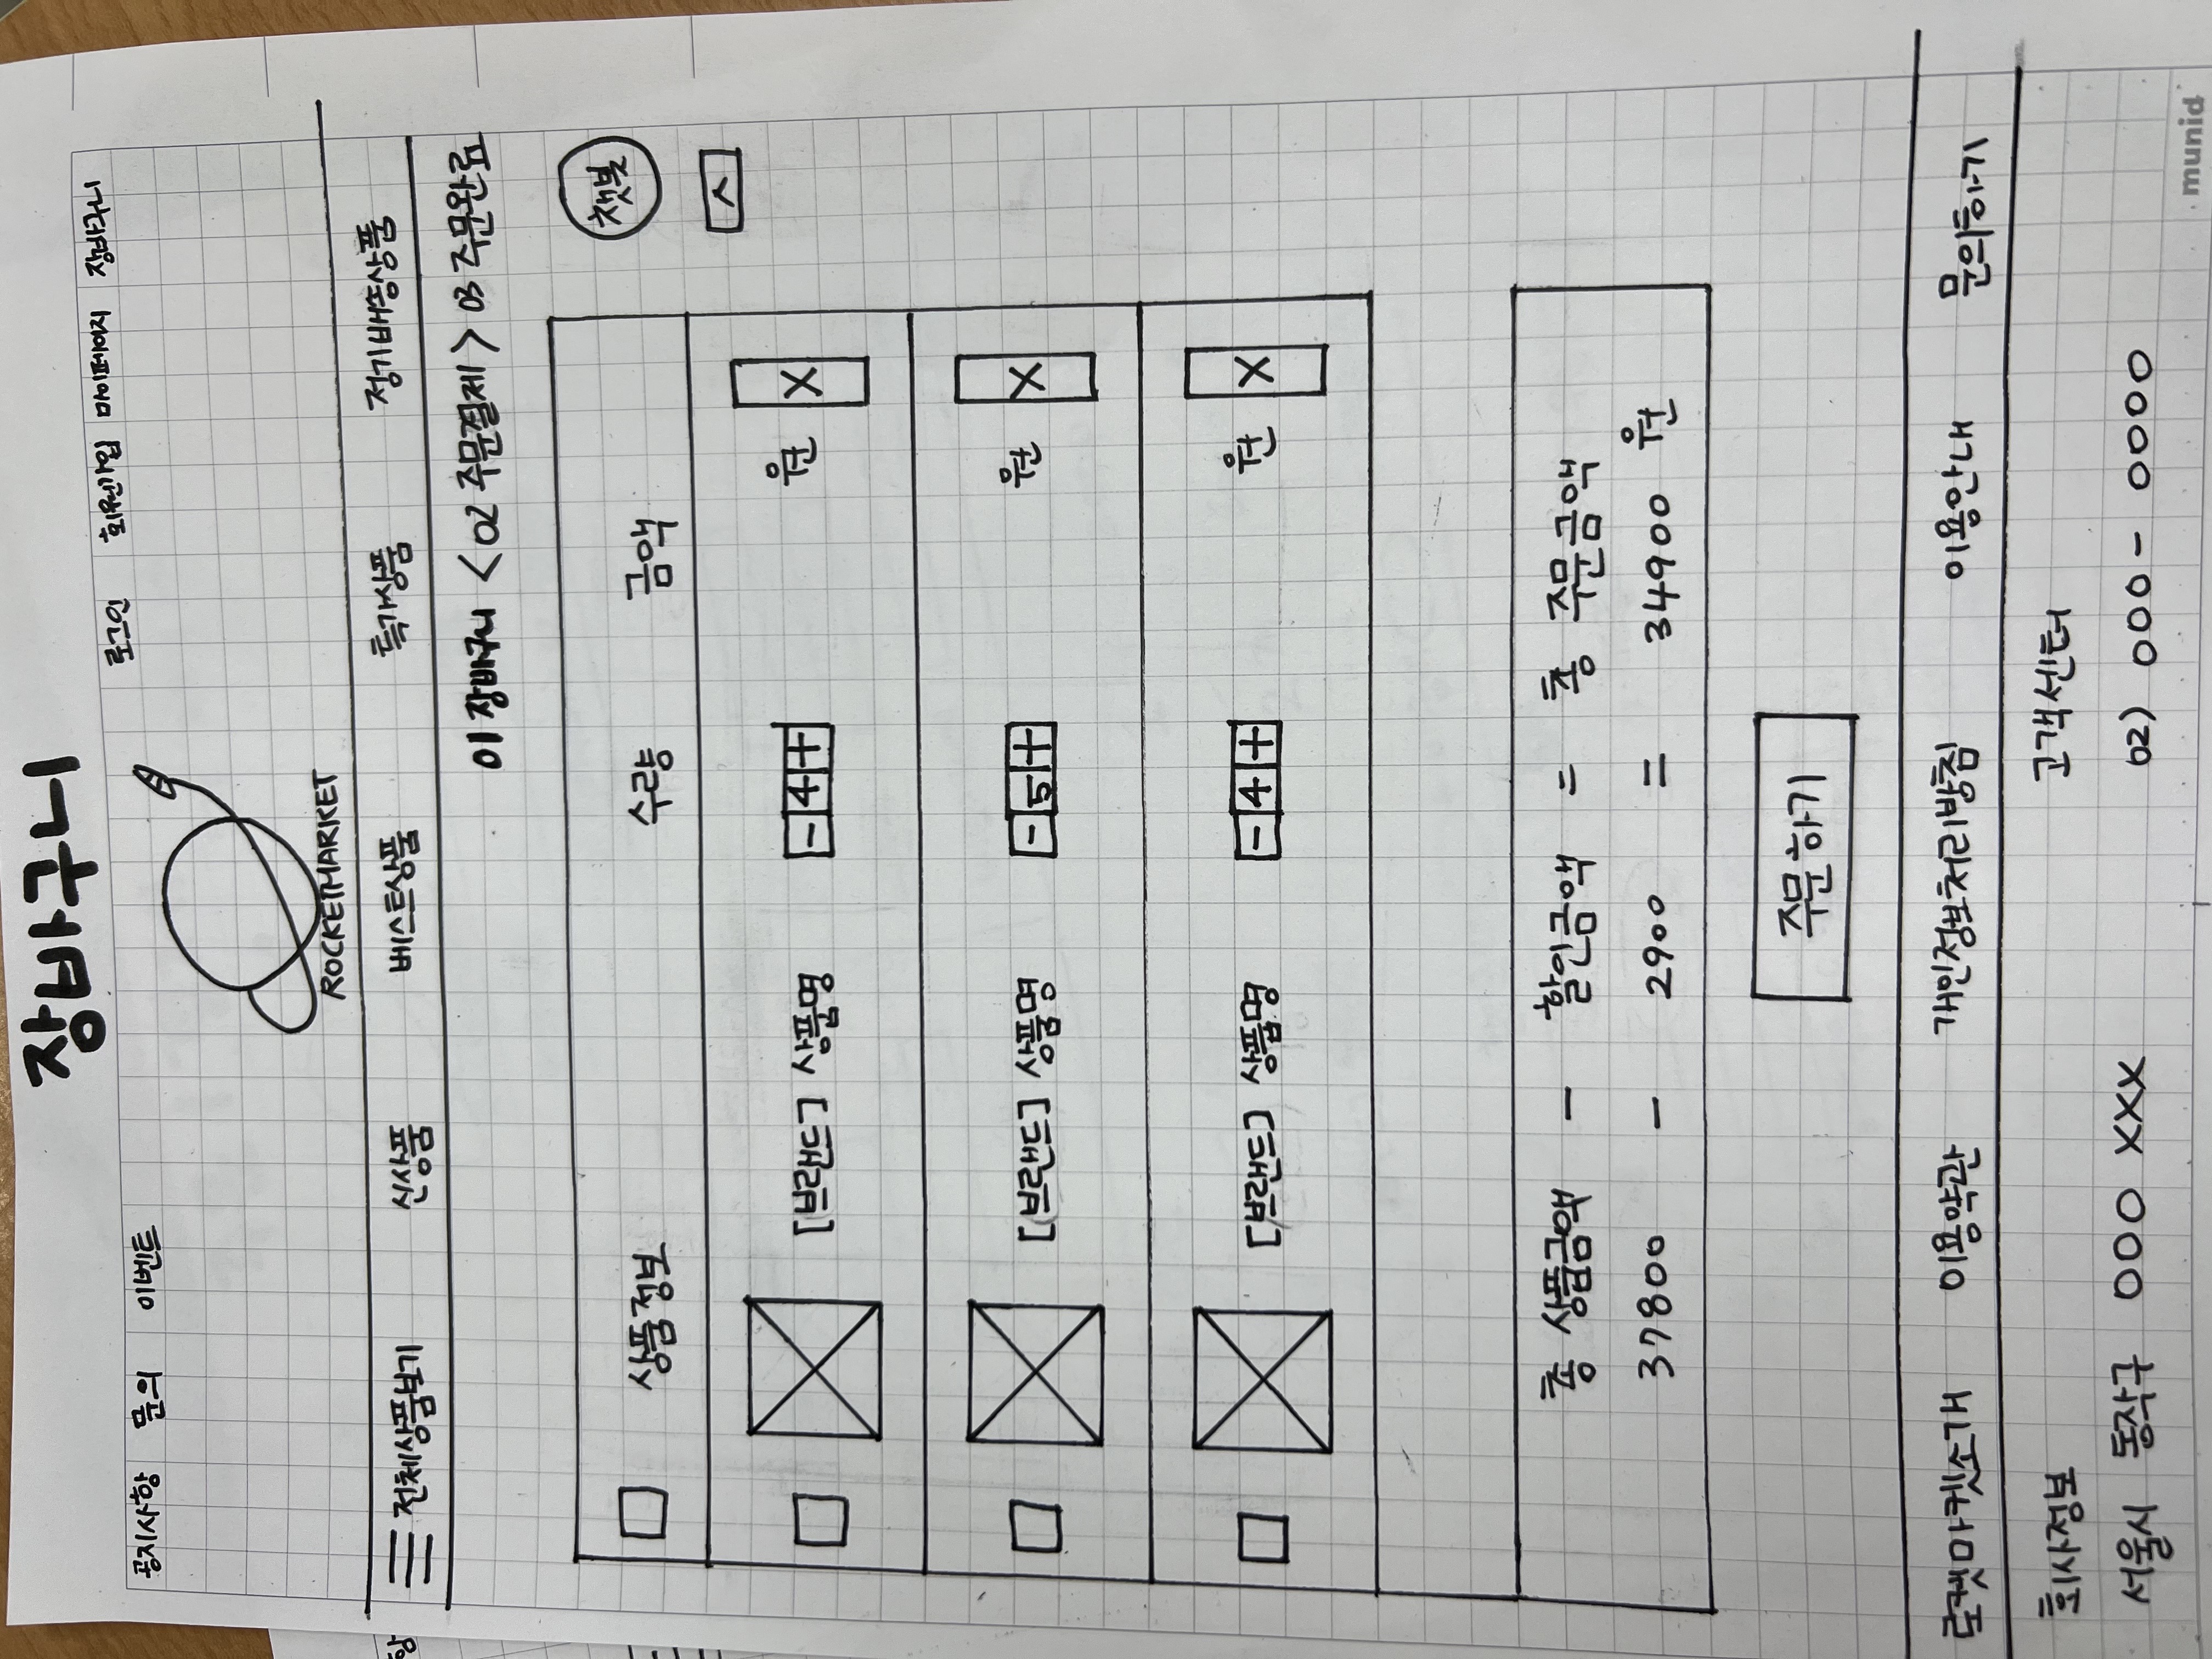 장바구니
공지사항 문의 이벤트 로그인 회원가입 마이페이지 장바구니
ROCKETMARKET
전체상품보기 신상품 베스트상품 특가상품 정기배송상품
01 장바구니 < 02 주문결제 > 03 주문완료
챗봇
상품정보 수량 금액
[브랜드] 상품명 - 4 + 원 X
[브랜드] 상품명 - 5 + 원 X
[브랜드] 상품명 - 4 + 원 X
총 상품금액 - 할인금액 = 총 주문금액
37800 - 2900 = 34900 원
주문하기
로켓마켓소개 이용약관 개인정보처리방침 이용안내 문의하기
회사정보 고객센터
서울시 동작구 OOO XXX 02) 000 - 0000
munid
항